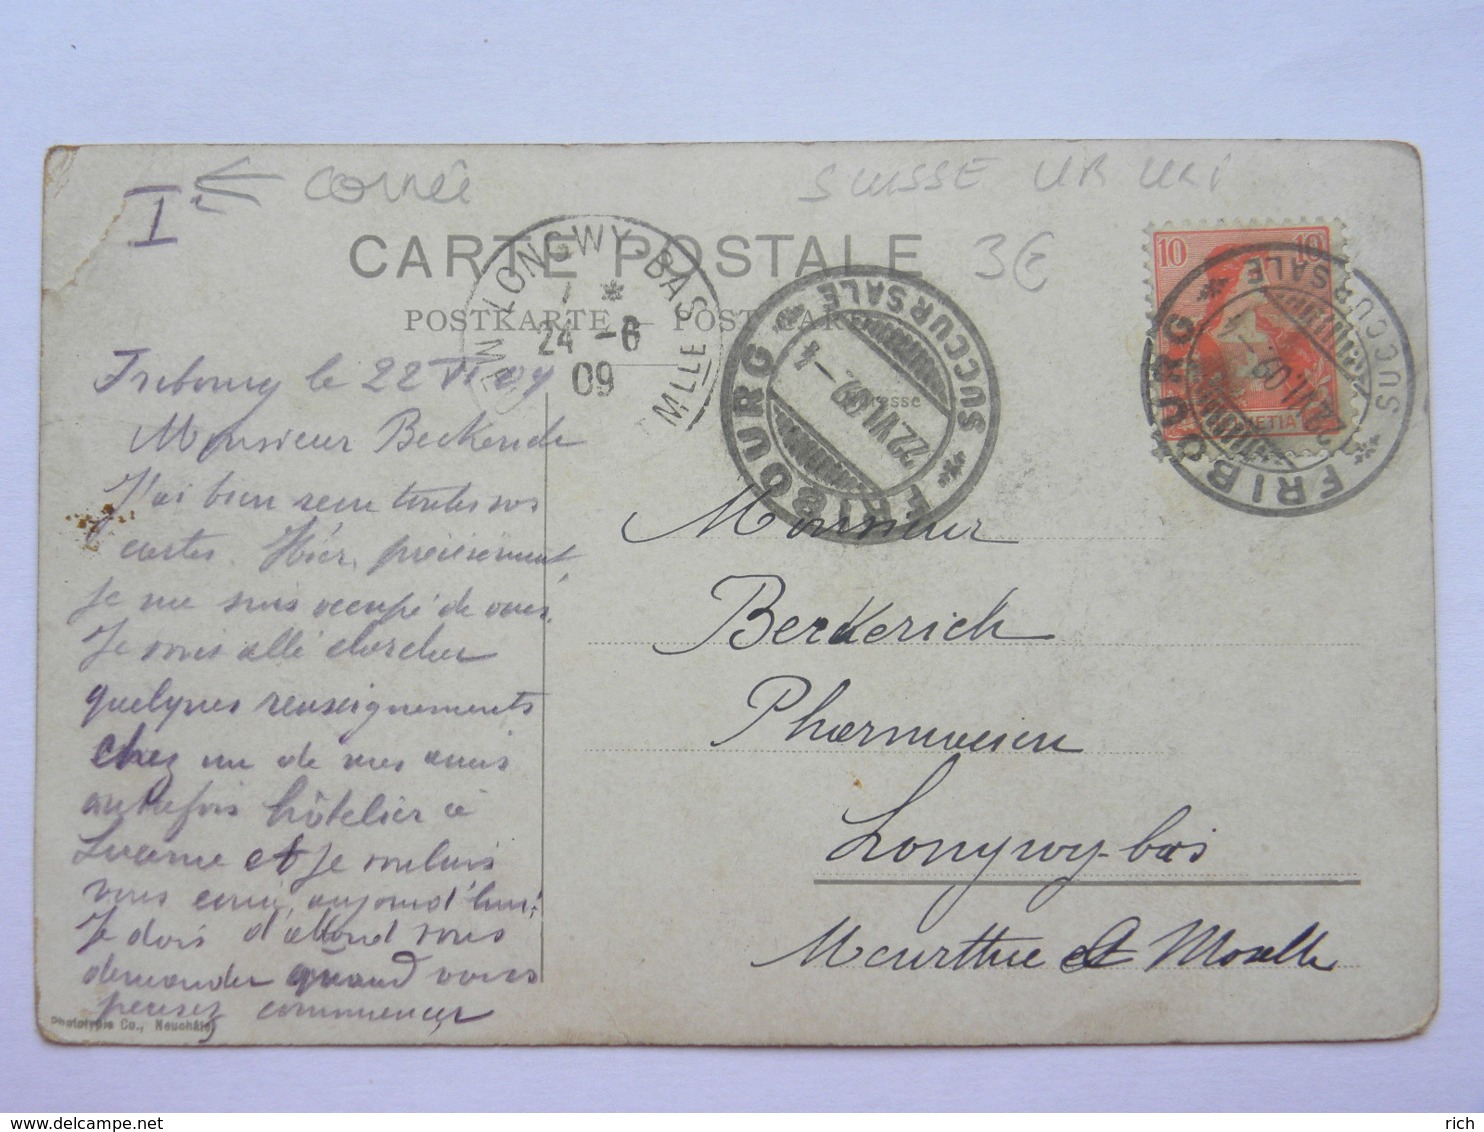 I ← cornée
SUISSE UR URI
CARTE POSTALE
3€
POSTKARTE — POST CARD
LONGWY-BAS
7 *
24 - 6
09
MEURTHE MLLE
FRIBOURG
SUCCURSALE
22 VI.09 – 4
10 10
HELVETIA
FRIBOURG
SUCCURSALE
22.VI.09
Adresse
Fribourg le 22 VI 09
Monsieur Beckerich
J'ai bien reçu toutes vos
cartes. Hier, précisément,
je me suis occupé de vous.
Je suis allé chercher
quelques renseignements
chez un de mes amis
autrefois hôtelier à
Lucerne et je voulais
vous écrire aujourd'hui;
Je dois d'abord vous
demander quand vous
pensez commencer
Phototypie Co., Neuchâtel
Monsieur
Beckerich
Pharmacien
Longwy-bas
Meurthe et Moselle
rich